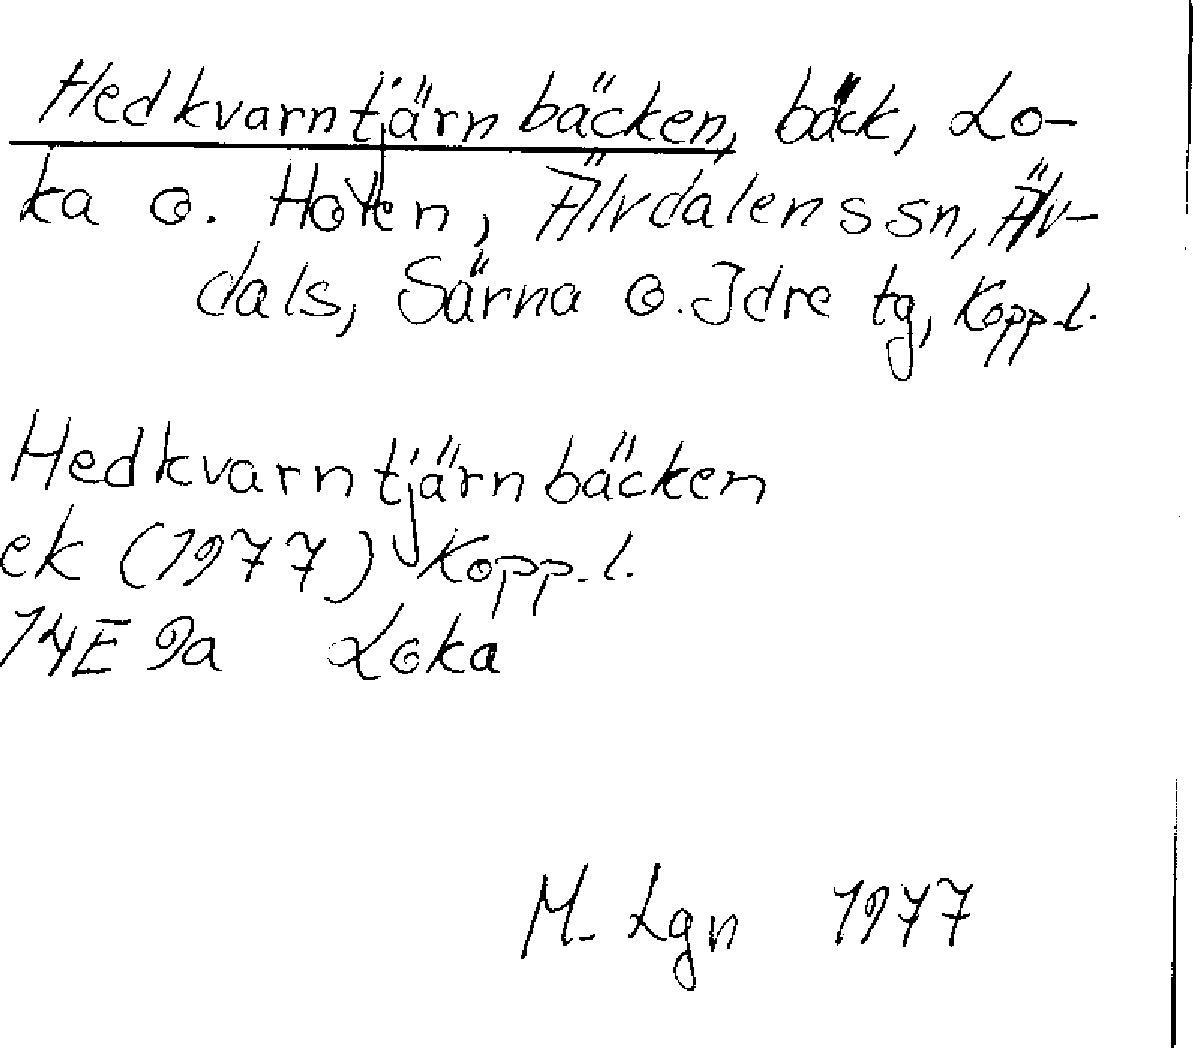 Hedkvarntjärnbäcken, bäck, Lo-
ka o. Holen, Älvdalens sn, Älv-
dals, Särna o. Idre tg, Kopp.l.
Hedkvarntjärnbäcken
ek (1977) Kopp.l.
14E 9a Loka
M. Lgn 1977